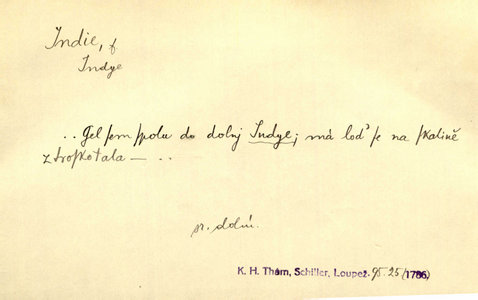 Indie, f
Indye
.. Gel sem spolu do dolnj Indye; má loď se na skalině
ztroskotala — ..
sr. dolní.
K. H. Thám, Schiller, Loupež. 95.25 (1786)